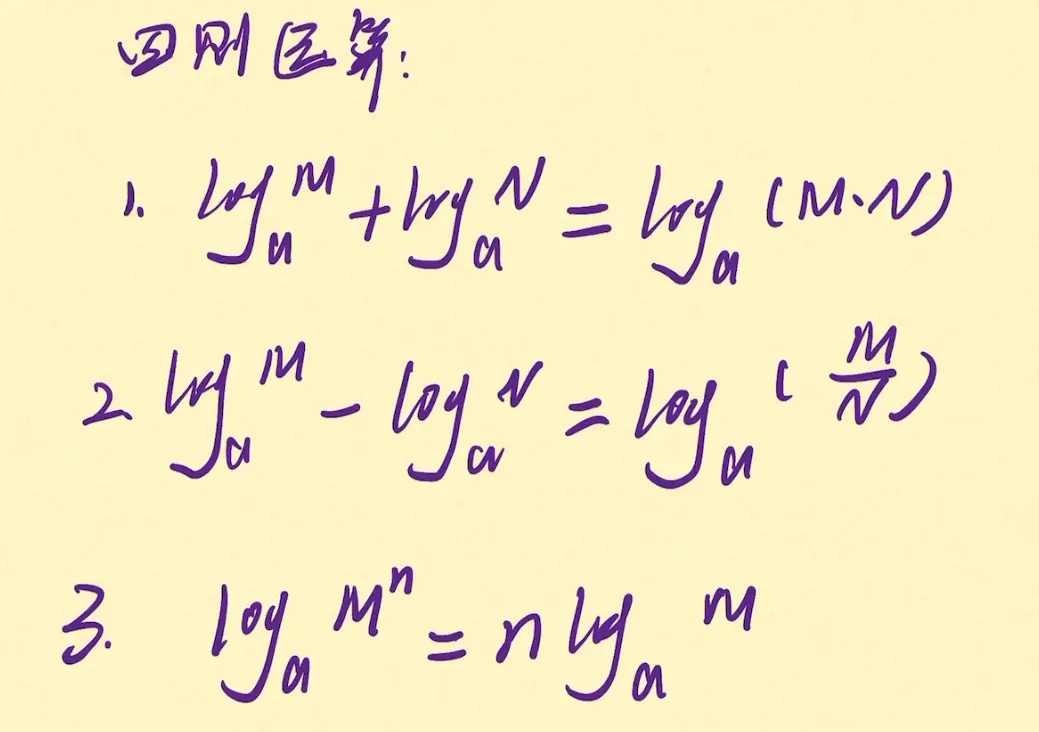 四则运算:
1. log_a M + log_a N = log_a (M·N)
2. log_a M - log_a N = log_a (M/N)
3. log_a M^n = n log_a M